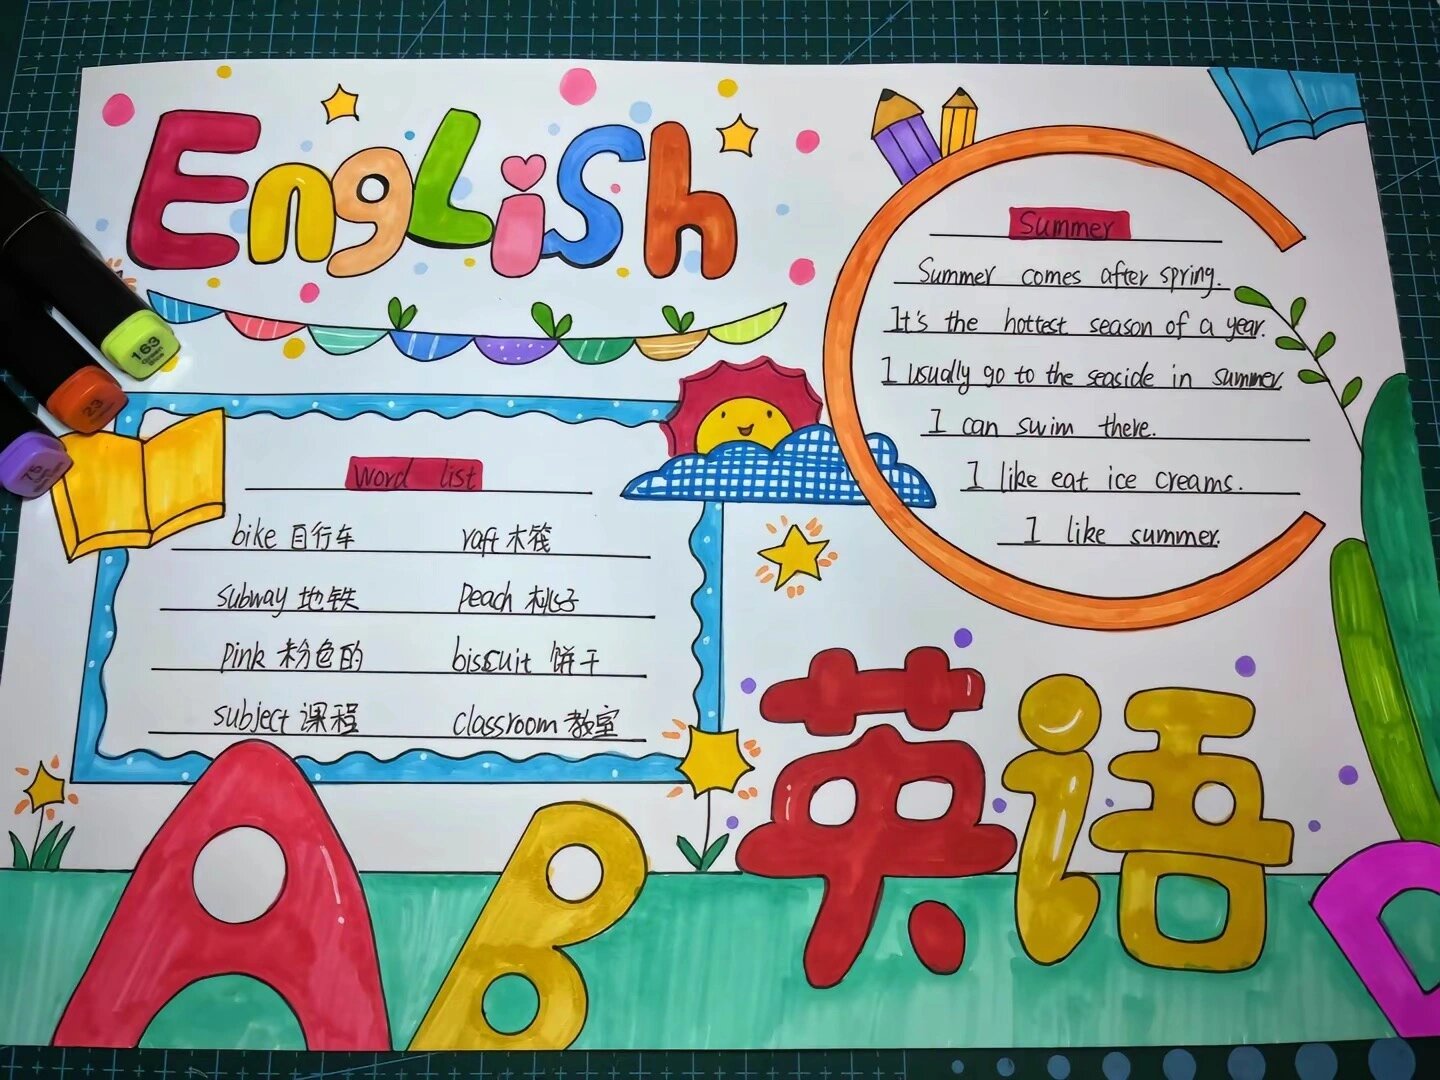 English
Summer
Summer comes after spring.
It's the hottest season of a year.
I usually go to the seaside in summer.
I can swim there.
I like eat ice creams.
I like summer.
Word list
bike 自行车 raft 木筏
subway 地铁 Peach 桃子
Pink 粉色的 biscuit 饼干
subject 课程 classroom 教室
英语
A B D
163
23
75